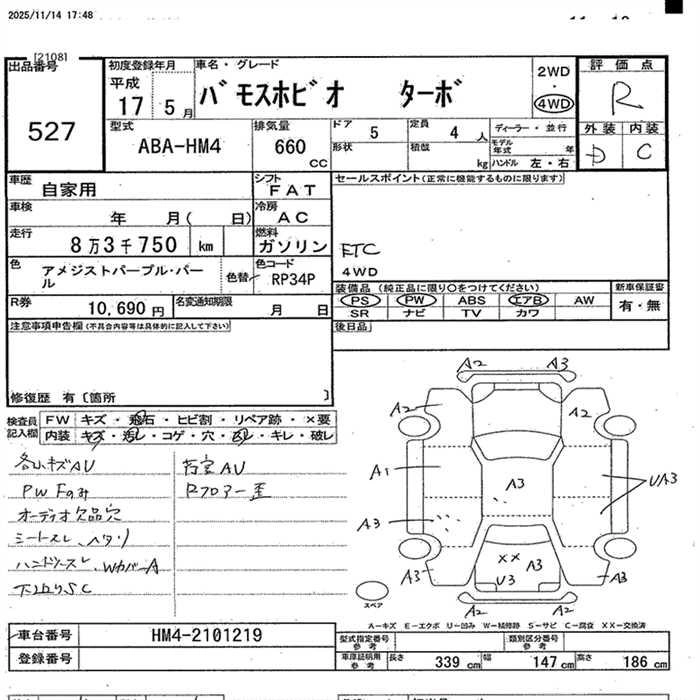 2025/11/14 17:48
[2108]
出品番号
527
初度登録年月
平成
17 5月
車名・グレード
バモスホビオ ターボ
2WD
・
4WD
評価点
R
外装 内装
D C
型式
ABA-HM4
排気量
660
cc
ドア
5
定員
4人
形状
積載
kg
ディーラー・並行
モデル年式 年
ハンドル 左・右
車歴
自家用
シフト
FAT
車検
年 月( 日)
冷房
AC
走行
8万3千750 km
燃料
ガソリン
色
アメジストパープル・パール
色替
色コード
RP34P
R券
10,690円
名変通知期限
月 日
セールスポイント(正常に機能するものに限ります)
ETC
4WD
装備品(純正品に限り○をつけてください)
PS PW ABS エアB AW
SR ナビ TV カワ
新車保証書
有・無
後日品
注意事項申告欄(不具合内容等は具体的に記入して下さい)
修復歴 有〔箇所 〕
検査員
記入欄
FW キズ・飛石・ヒビ割・リペア跡・×要
内装 キズ・汚レ・コゲ・穴・凹レ・キレ・破レ
各小キズAU
PW Fのみ
オーディオ欠品穴
シートスレ、ヘタリ
ハンドルスレ、WカバーA
下廻りSC
荷室AU
Rフロアー歪
A2 A3
A2 A2
A1
A3
UA3
A3
XX A3
U3
A3 A3
A2 A2
スペア
A−キズ E−エクボ U−凹み W−補修跡 S−サビ C−腐食 XX−交換済
車台番号
HM4-2101219
登録番号
型式指定番号
参考
類別区分番号
参考
車庫証明用
参考
長さ 339 cm 幅 147 cm 高さ 186 cm